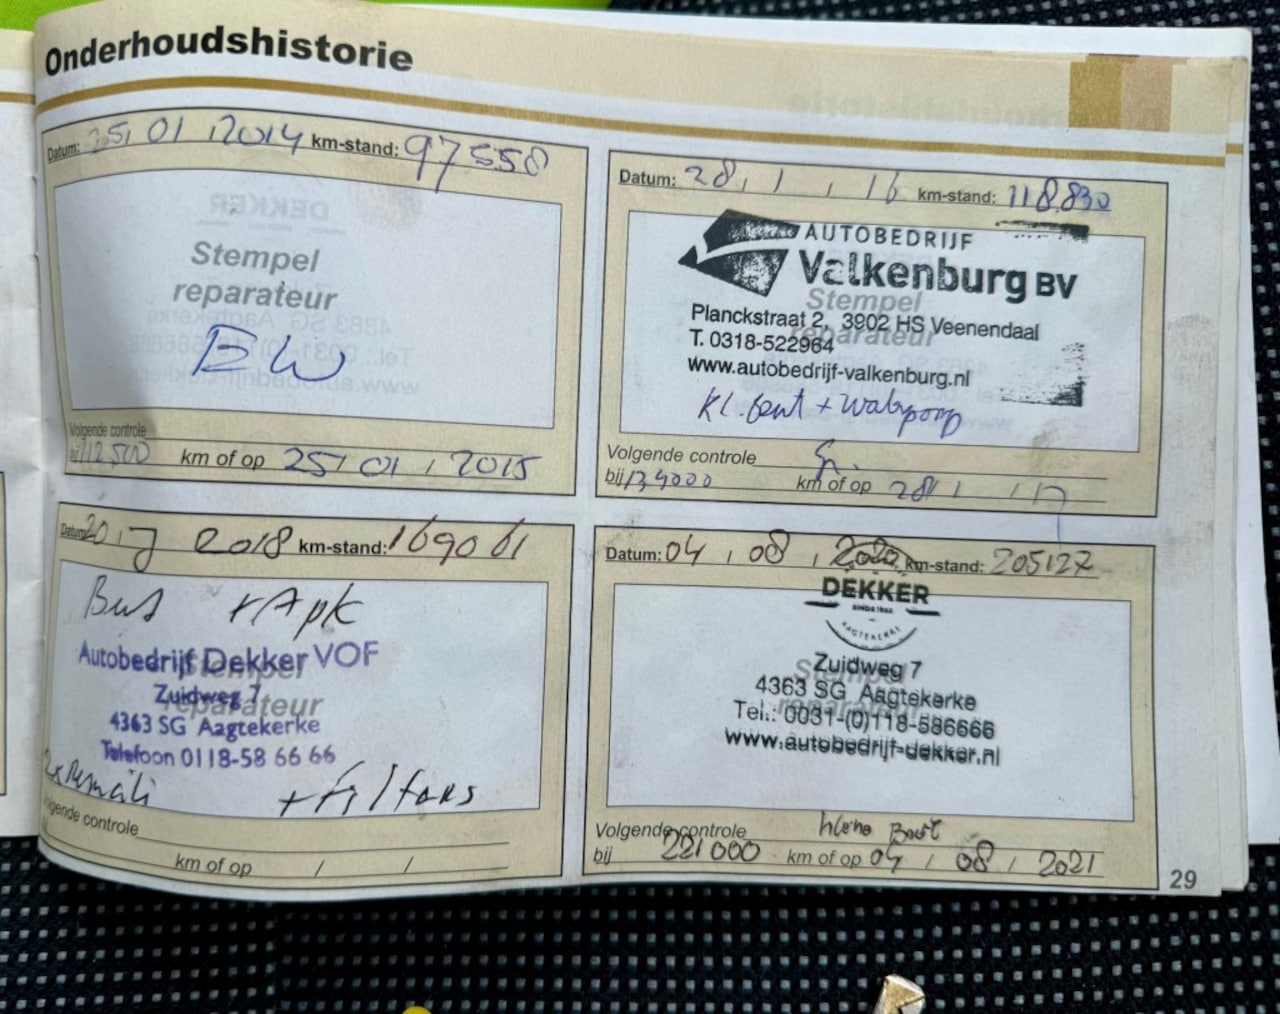 Onderhoudshistorie
Datum: 25, 01, 2014 km-stand: 97558
Stempel
reparateur
BW
Volgende controle
bij 112500 km of op 25, 01, 2015
Datum: 28, 1, 16 km-stand: 118.830
AUTOBEDRIJF
Valkenburg BV
Stempel
Planckstraat 2, 3902 HS Veenendaal
reparateur
T. 0318-522964
www.autobedrijf-valkenburg.nl
Kl. beurt +
Volgende controle
bij 134000 km of op 28, 1, 17
Datum: 20, 7 2018 km-stand: 169061
Beurt + Apk
Autobedrijf Dekker VOF
Stempel
Zuidweg 7
reparateur
4363 SG Aagtekerke
Telefoon 0118-58 66 66
+ filters
Volgende controle
km of op / /
Datum: 04, 08, 2020 km-stand: 205127
DEKKER
SINDS 1962
AAGTEKERKE
Zuidweg 7
Stempel
4363 SG Aagtekerke
reparateur
Tel.: 0031-(0)118-586666
www.autobedrijf-dekker.nl
Volgende controle kleine Beurt
bij 221000 km of op 04, 08, 2021
29